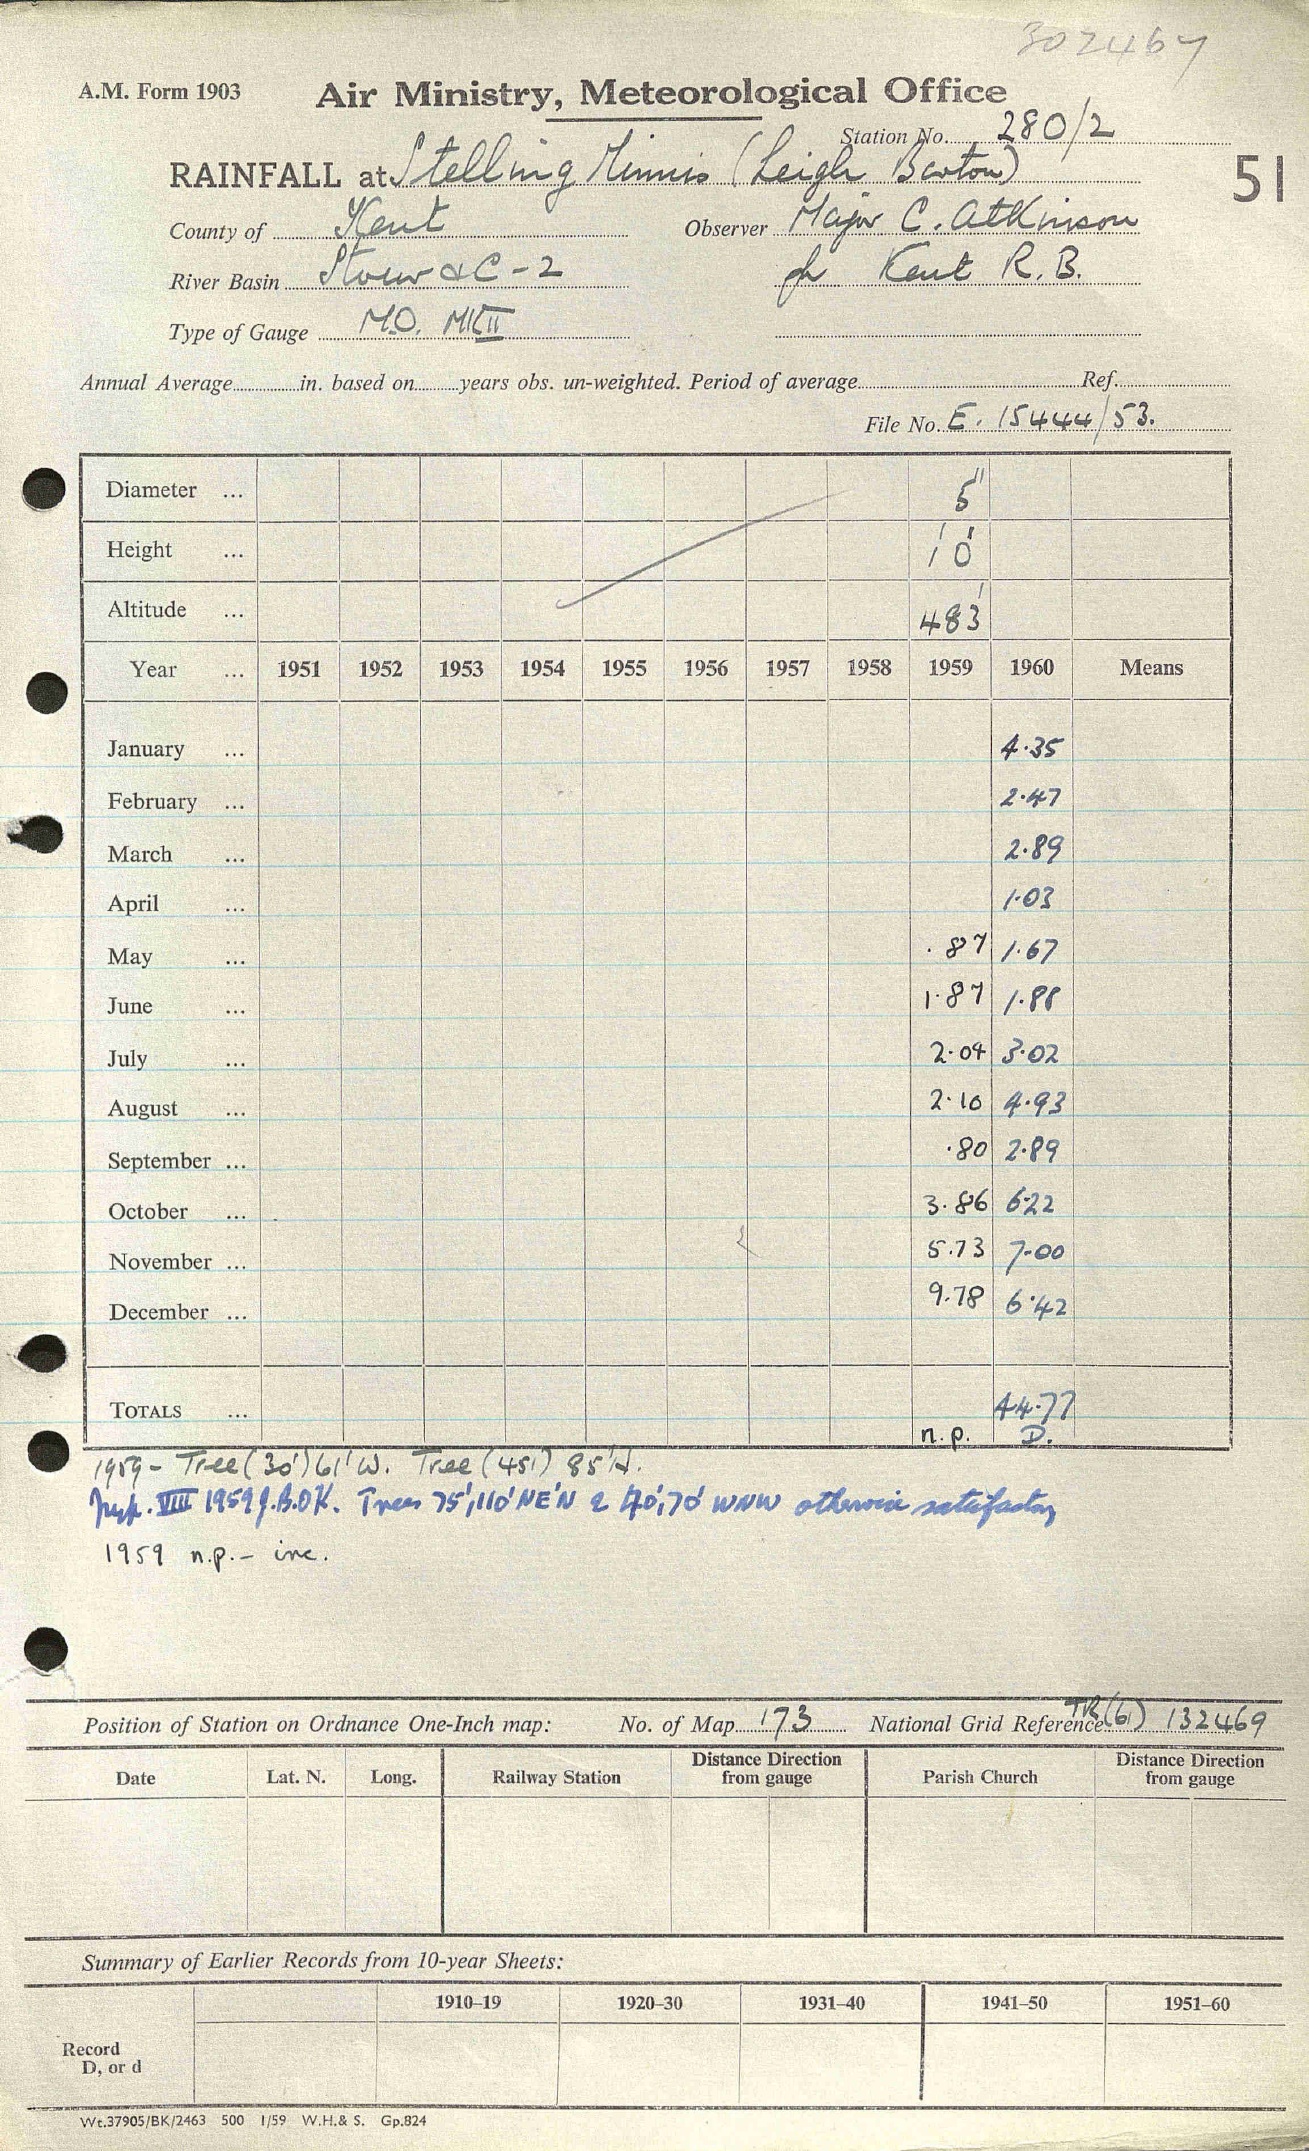 302467
A.M. Form 1903
Air Ministry, Meteorological Office
Station No. 280/2
51
RAINFALL at Stelling Minnis (Leigh Barton)
County of Kent
Observer Major C. Atkinson
River Basin Stour &C - 2
for Kent R.B.
Type of Gauge M.O. MKII
Annual Average in. based on years obs. un-weighted. Period of average Ref.
File No. E. 15444/53.
Diameter ... 5"
Height ... 1' 0"
Altitude ... 483'
Year ... 1951 1952 1953 1954 1955 1956 1957 1958 1959 1960 Means
January ... 4.35
February ... 2.47
March ... 2.89
April ... 1.03
May ... .87 1.67
June ... 1.87 1.88
July ... 2.04 3.02
August ... 2.10 4.93
September ... .80 2.89
October ... 3.86 6.22
November ... 5.73 7.00
December ... 9.78 6.42
TOTALS ... 44.77
n.p. D.
1959 - Tree (30') 61' W. Tree (45') 85'
Insp. VIII 1959 J.B.OK. Trees 75', 110' NE'N & 40', 70' WNW otherwise satisfactory
1959 n.p. - inc.
Position of Station on Ordnance One-Inch map: No. of Map 173 National Grid Reference TR(61) 132469
Date Lat. N. Long. Railway Station Distance Direction from gauge Parish Church Distance Direction from gauge
Summary of Earlier Records from 10-year Sheets:
1910–19 1920–30 1931–40 1941–50 1951–60
Record
D, or d
Wt.37905/BK/2463 500 1/59 W.H.& S. Gp.824